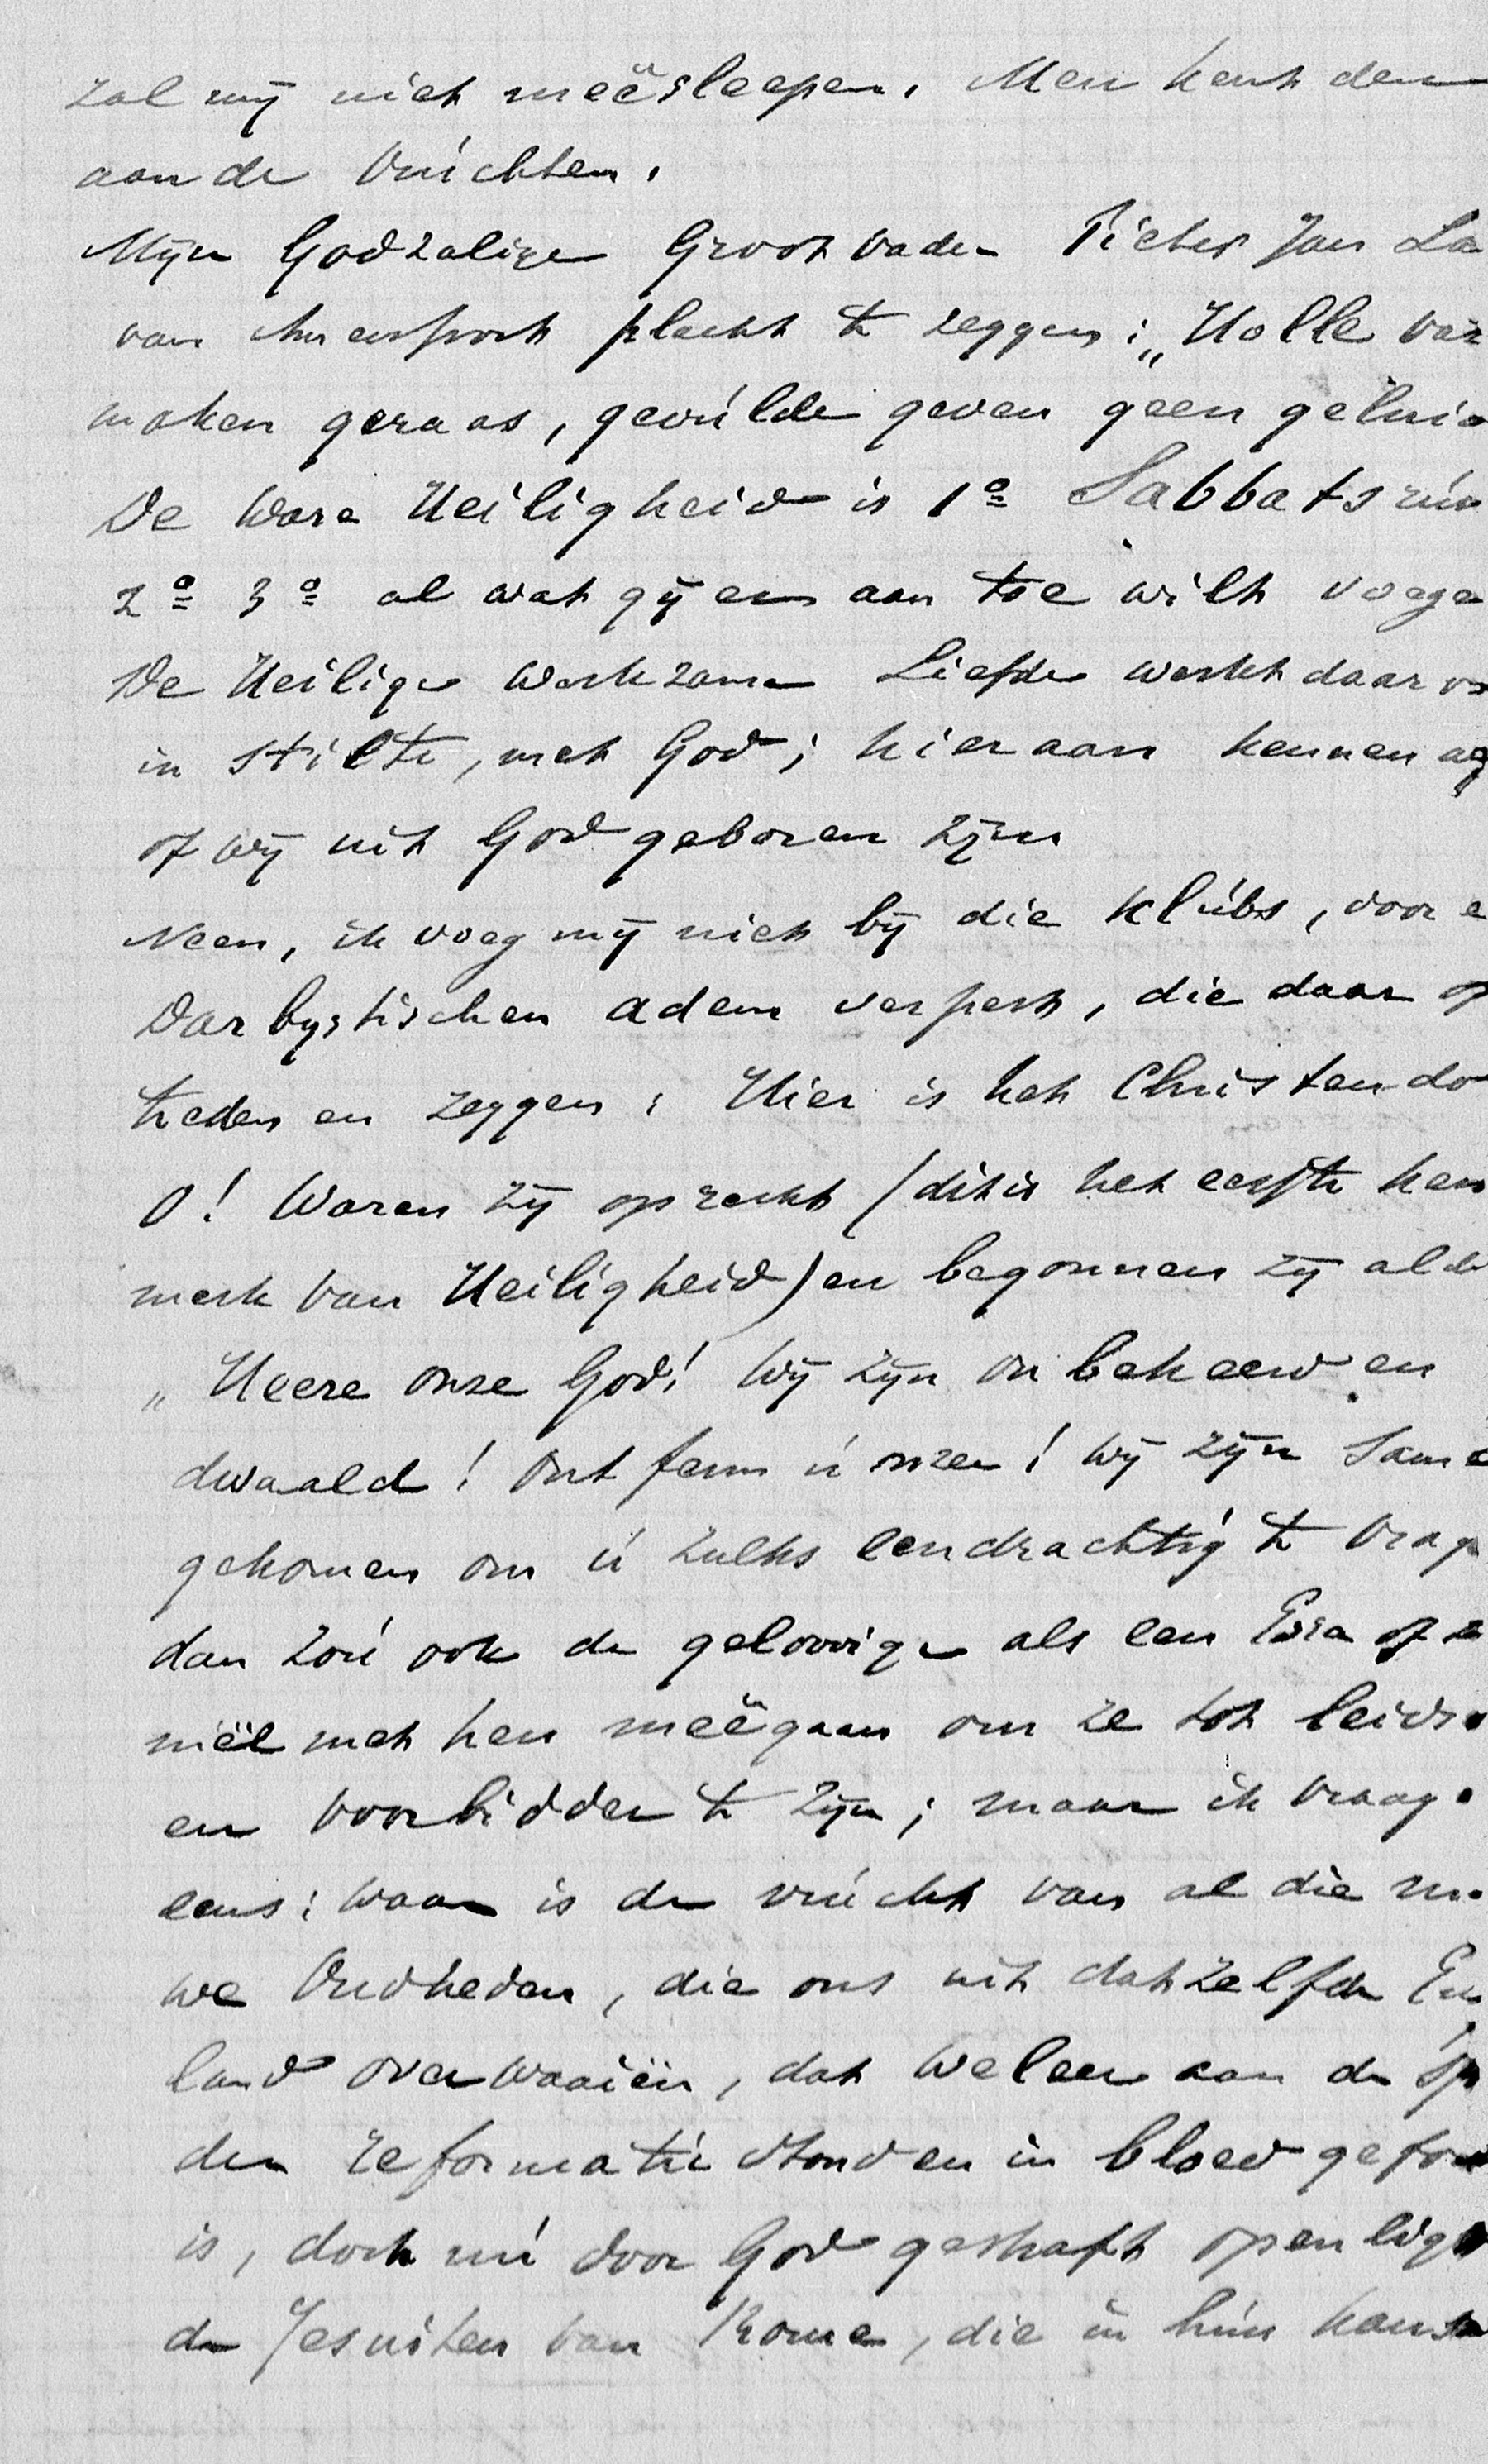 zal mij niet meêsleepen. Men kent den
aan de vruchten.
Mijn Godzalige Grootvader Pieter Jan La
van Amersfoort placht te zeggen: „Holle vaz
maken geraas, gevulde geven geen gelui
De ware Heiligheid is 1º Sabbatsru
2º 3º al wat gij er aan toe wilt voege
De Heilige werkzame Liefde werkt daar
in stilte, met God; hieraan kennen
of wij uit God geboren zijn
Neen, ik voeg mij niet bij die klubs, door e
Darbystischen adem verpest, die daar op
treden en zeggen: Hier is het Christendo
O! Waren zij oprecht (dit is het eerste ken
merk van Heiligheid) en begonnen zij al
„Heere onze God! Wij zijn onbekeerd en
dwaald! Ontferm U onzer! Wij zijn same
gekomen om U zulks eendrachtig te vrag
dan zou ook de geloovige als een Ezra of
niël met hen meêgaan om ze tot leids
en voorbidder te zijn; maar ik vraag
eens: waar is de vrucht van al die
we Oudheden, die ons uit datzelfde En
land overwaaiën, dat weleer aan de sp
der reformatie stond en in bloed
is, doch nu door God gestraft open ligt
de Jesuiten van Rome, die in hun